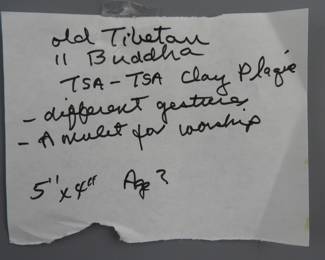 old Tibetan
11 Buddha
TSA-TSA Clay Plaqie
- different gesture
- Amulet for worship
5" x 4" Age?